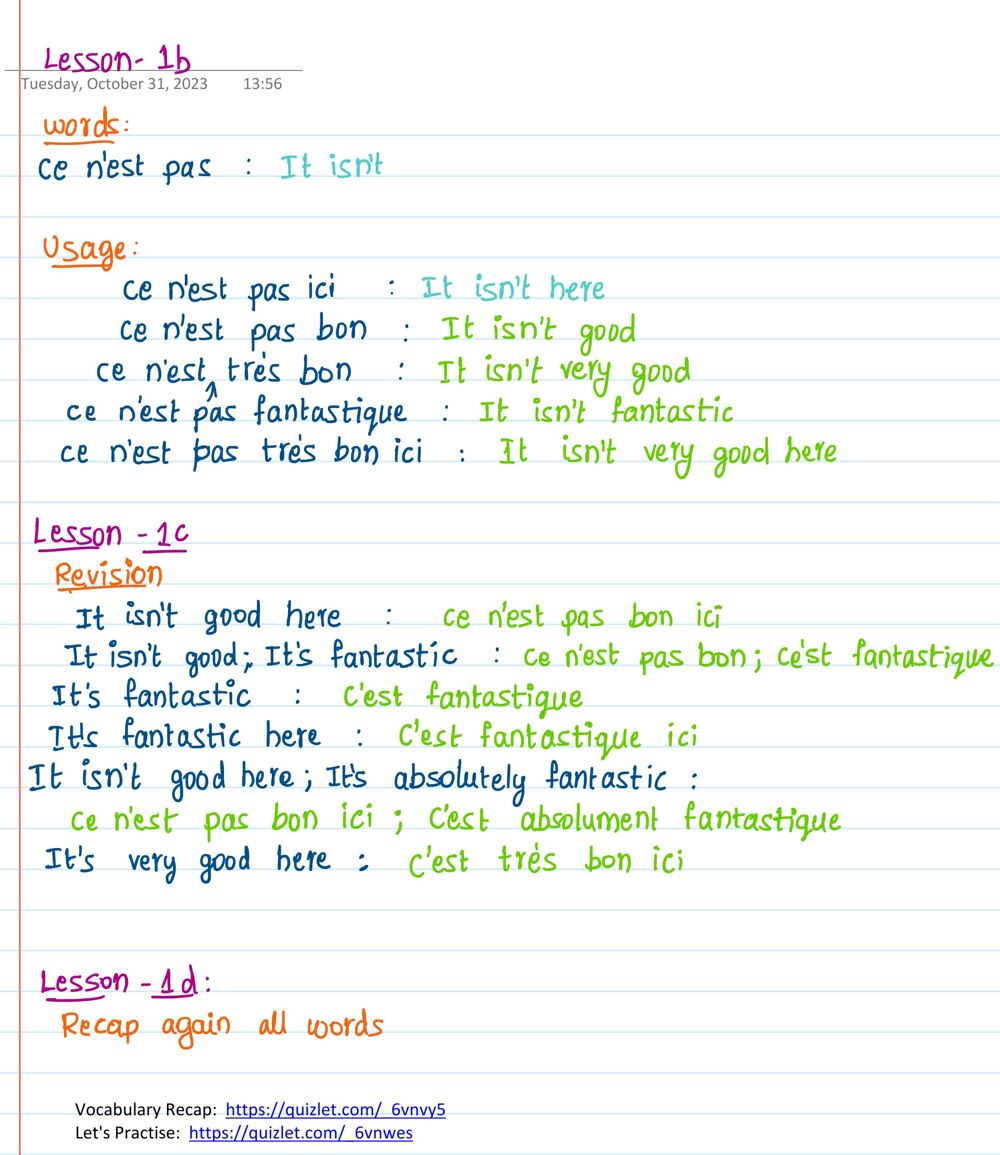 Lesson- 1b
Tuesday, October 31, 2023 13:56
words:
ce n'est pas : It isn't
Usage:
ce n'est pas ici : It isn't here
ce n'est pas bon : It isn't good
ce n'est ^ trés bon : It isn't very good
ce n'est pas fantastique : It isn't fantastic
ce n'est pas trés bon ici : It isn't very good here
Lesson - 1c
Revision
It isn't good here : ce n'est pas bon ici
It isn't good; It's fantastic : ce n'est pas bon; ce'st fantastique
It's fantastic : C'est fantastique
It's fantastic here : C'est fantastique ici
It isn't good here; It's absolutely fantastic :
ce n'est pas bon ici ; C'est absolument fantastique
It's very good here : C'est trés bon ici
Lesson - 1d:
Recap again all words
Vocabulary Recap: https://quizlet.com/_6vnvy5
Let's Practise: https://quizlet.com/_6vnwes